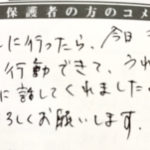 保護者の方のコメ
に行ったら、今日
行動できて、うれ
に話してくれました
ろしくお願いします。